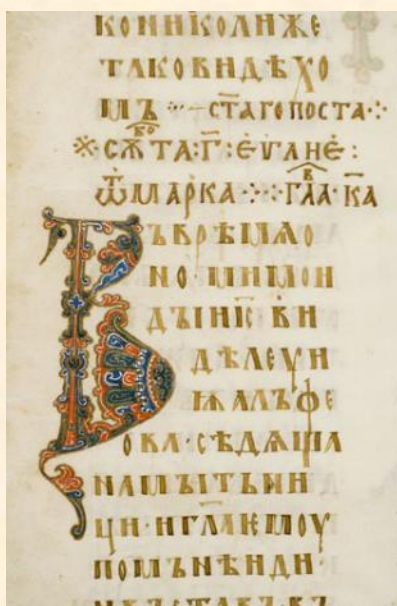 КОНИКОЛИЖЕ
ТАКОВИДѢХО
МЪ ·:·— СТ҃АГОПОСТА·:·
※·СѪБОТА·Г҃·:ЕѴГЛ҃НЕ:
ѾМАРКА·:·ГЛАВ·К҃А
ВЪВРѢМѦО
НО·МИМОИ
ДЫИІС҃ВИ
ДѢЛЕѴИ
ѬАЛЪФЕ
ОВА·СѢДѦША
НАМЫТЬНИ
ЦИ·ИГЛ҃АѤМОУ
ПОМЪНѢИДИ·
ИВЪСТАВЪВЪ